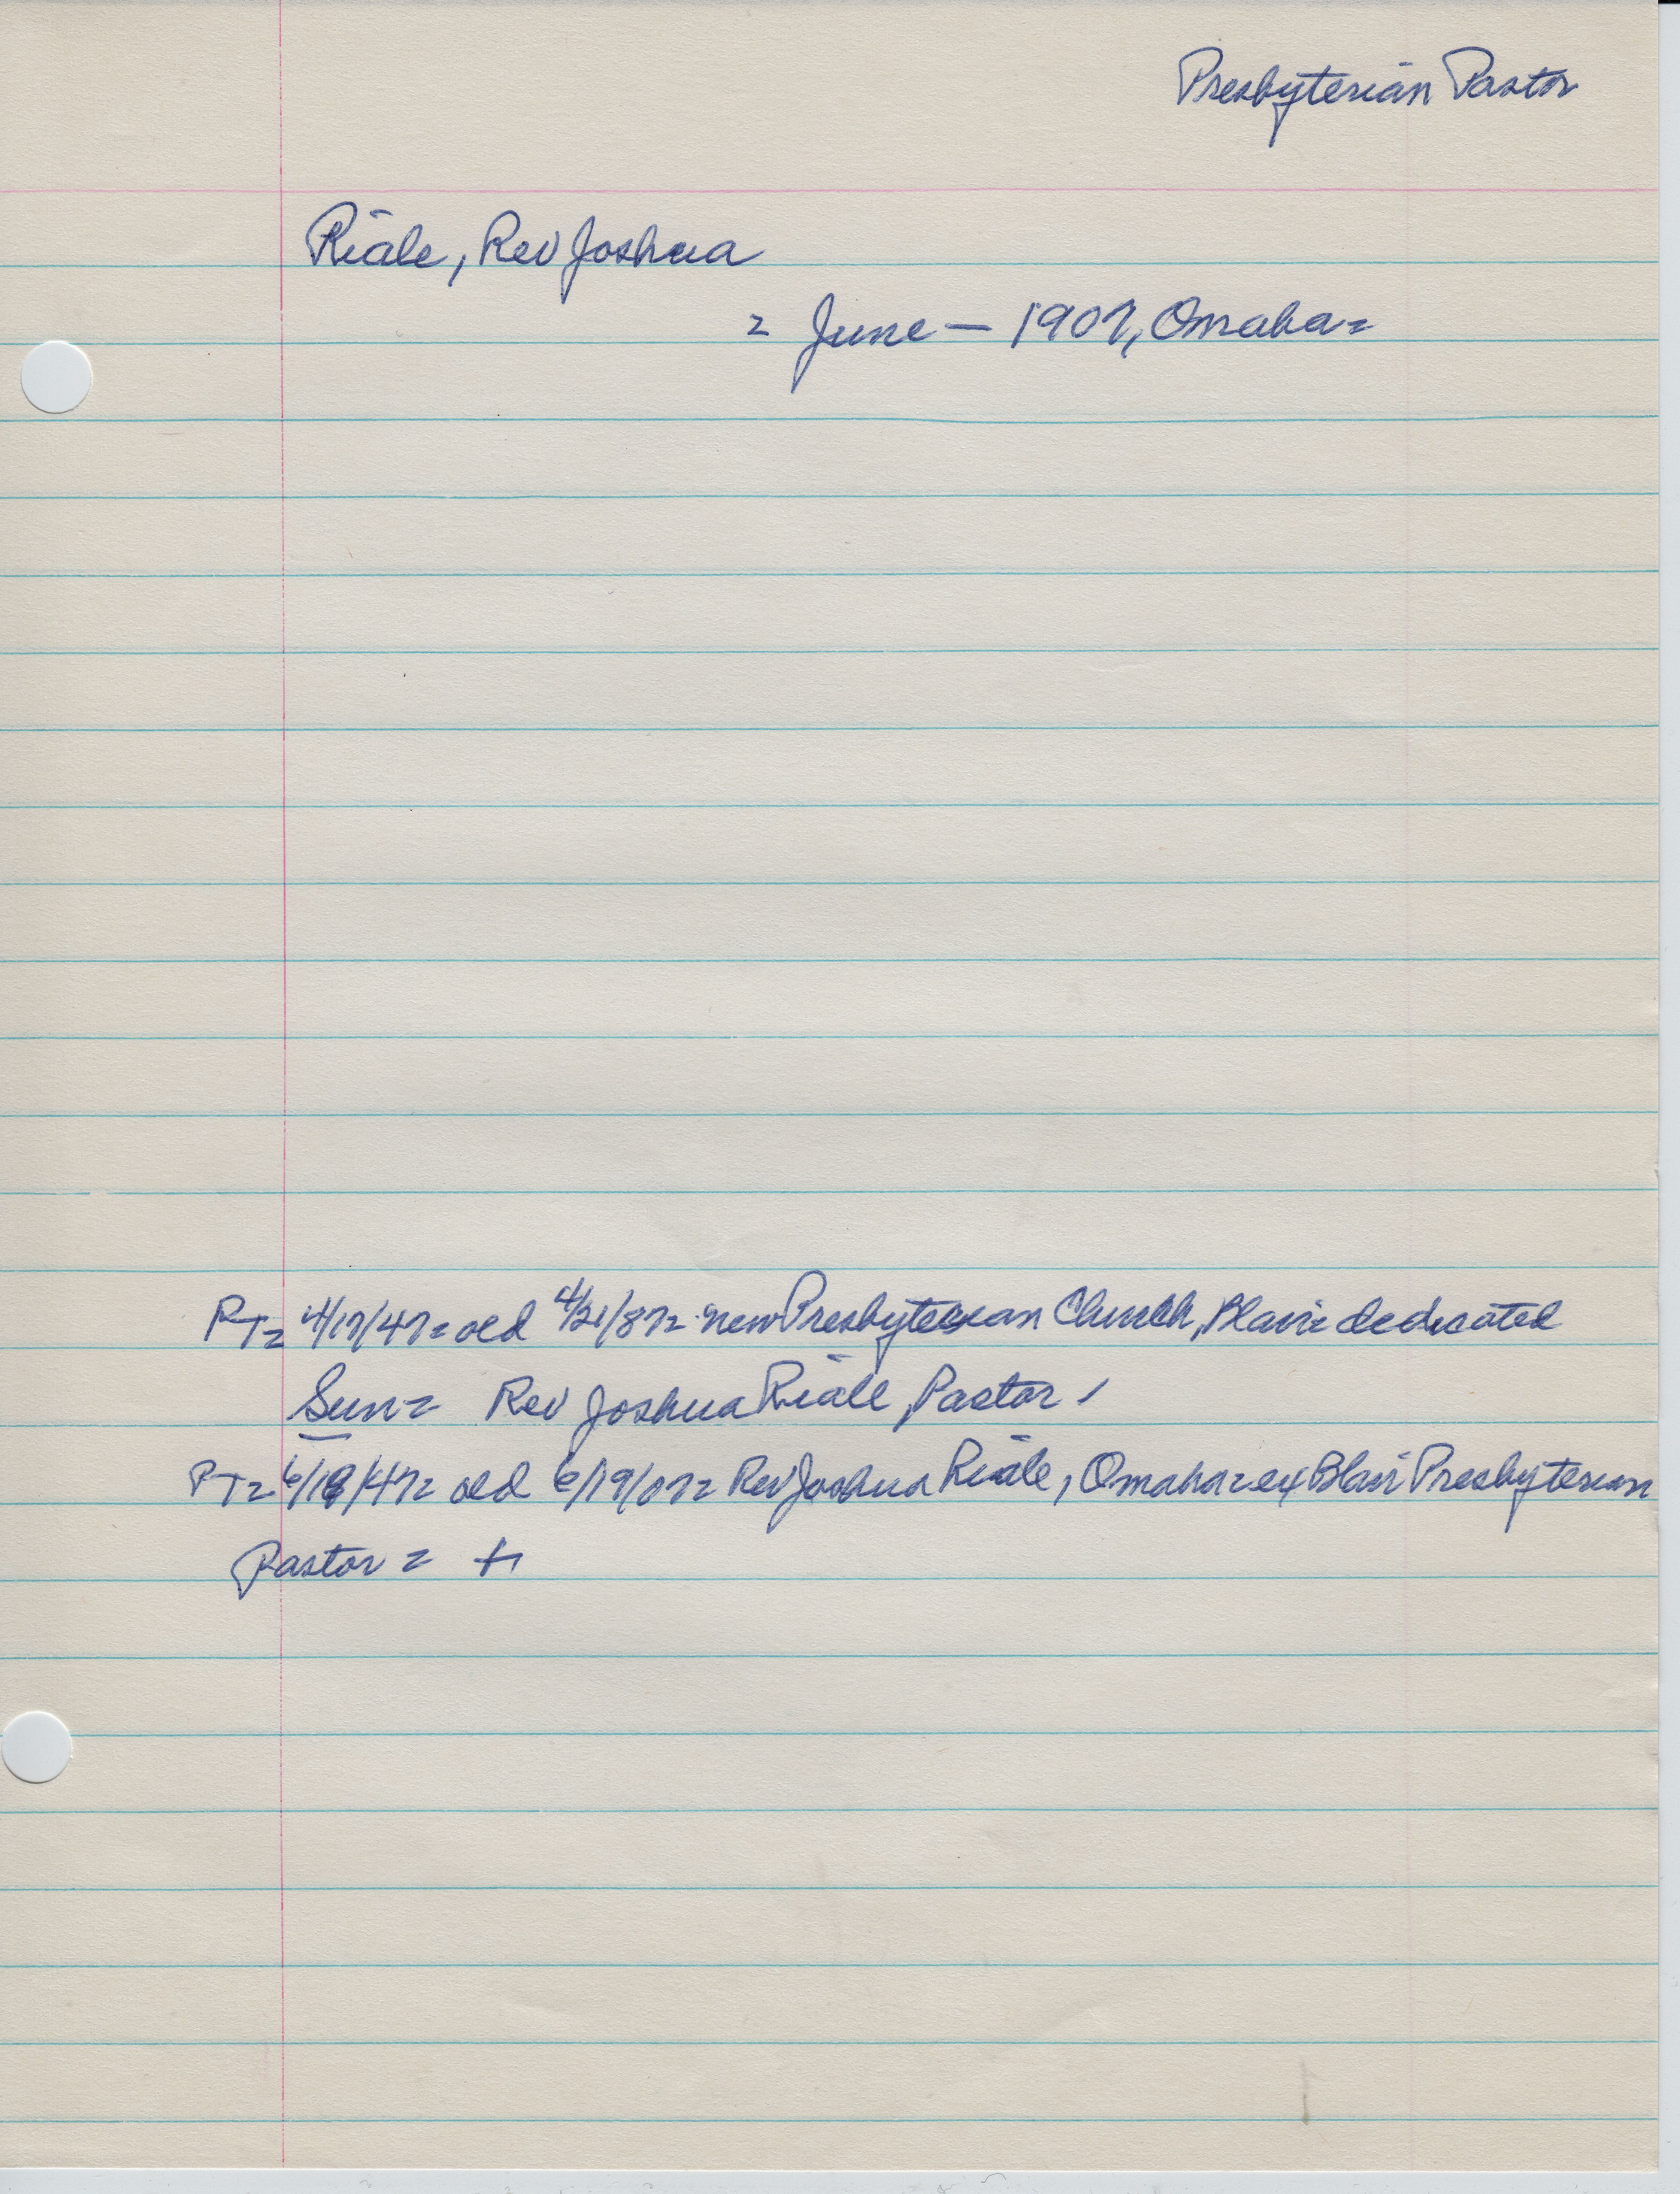 Presbyterian Pastor
Riale, Rev Joshua
= June — 1907, Omaha=
PT= 4/17/47= old 4/21/87= new Presbyterian Church, Blair= dedicated
Sun= Rev Joshua Riale, Pastor,
PT= 6/18/47= old 6/19/07= Rev Joshua Riale, Omaha= ex Blair Presbyterian
Pastor =